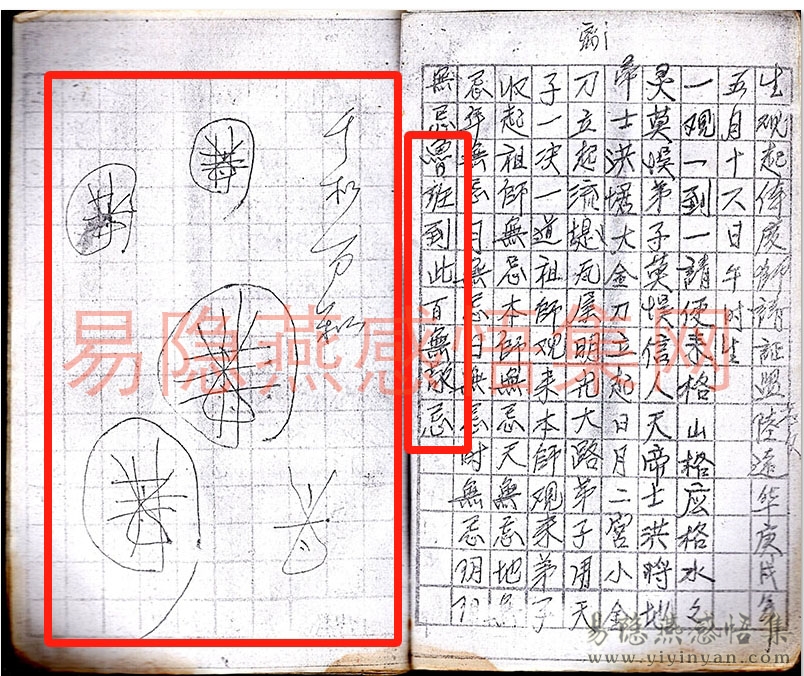 生观起度師請証盟陸遠华庚戌年
五月十六日午时生
一观一到一請便来格山格应格水之
灵莫悞弟子莫悞信人天帝士洪将地
帝士洪大金刀立起日月二宫小金
刀立起流堤瓦屋明光大路弟子用天
子一决一道祖師观来本師观来弟子
收起祖師無忌本師無忌天無忌地無
忌年無忌月無忌日無忌时無忌阴阳
無忌魯班到此百無禁忌
千和万和
易隐燕感悟集网
易隐燕感悟集
www.yiyinyan.com